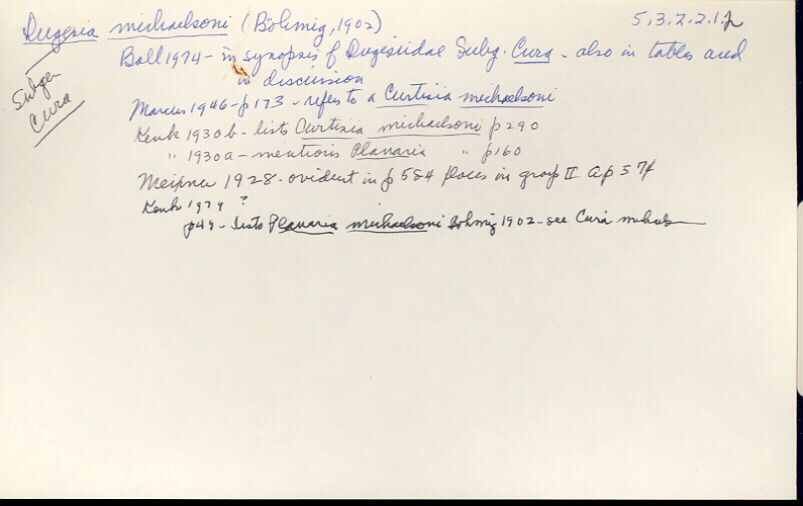 Dugesia michaelsoni (Böhmig, 1902) 5.3.2.2.1.2
Subgen Cura
Ball 1974 - in synopsis of Dugesiidae Subg. Cura - also in tables and
in discussion
Marcus 1946 - p 173 - refers to a Curtisia michaelsoni
Kenk 1930b - lists Curtisia michaelsoni p 290
" 1930a - mentions Planaria " p 160
Meixner 1928 - oviduct in p 584 places in group II a p 574
Kenk 1974 ?
p 49 - lists Planaria michaelsoni Böhmig 1902 - see Cura michaels